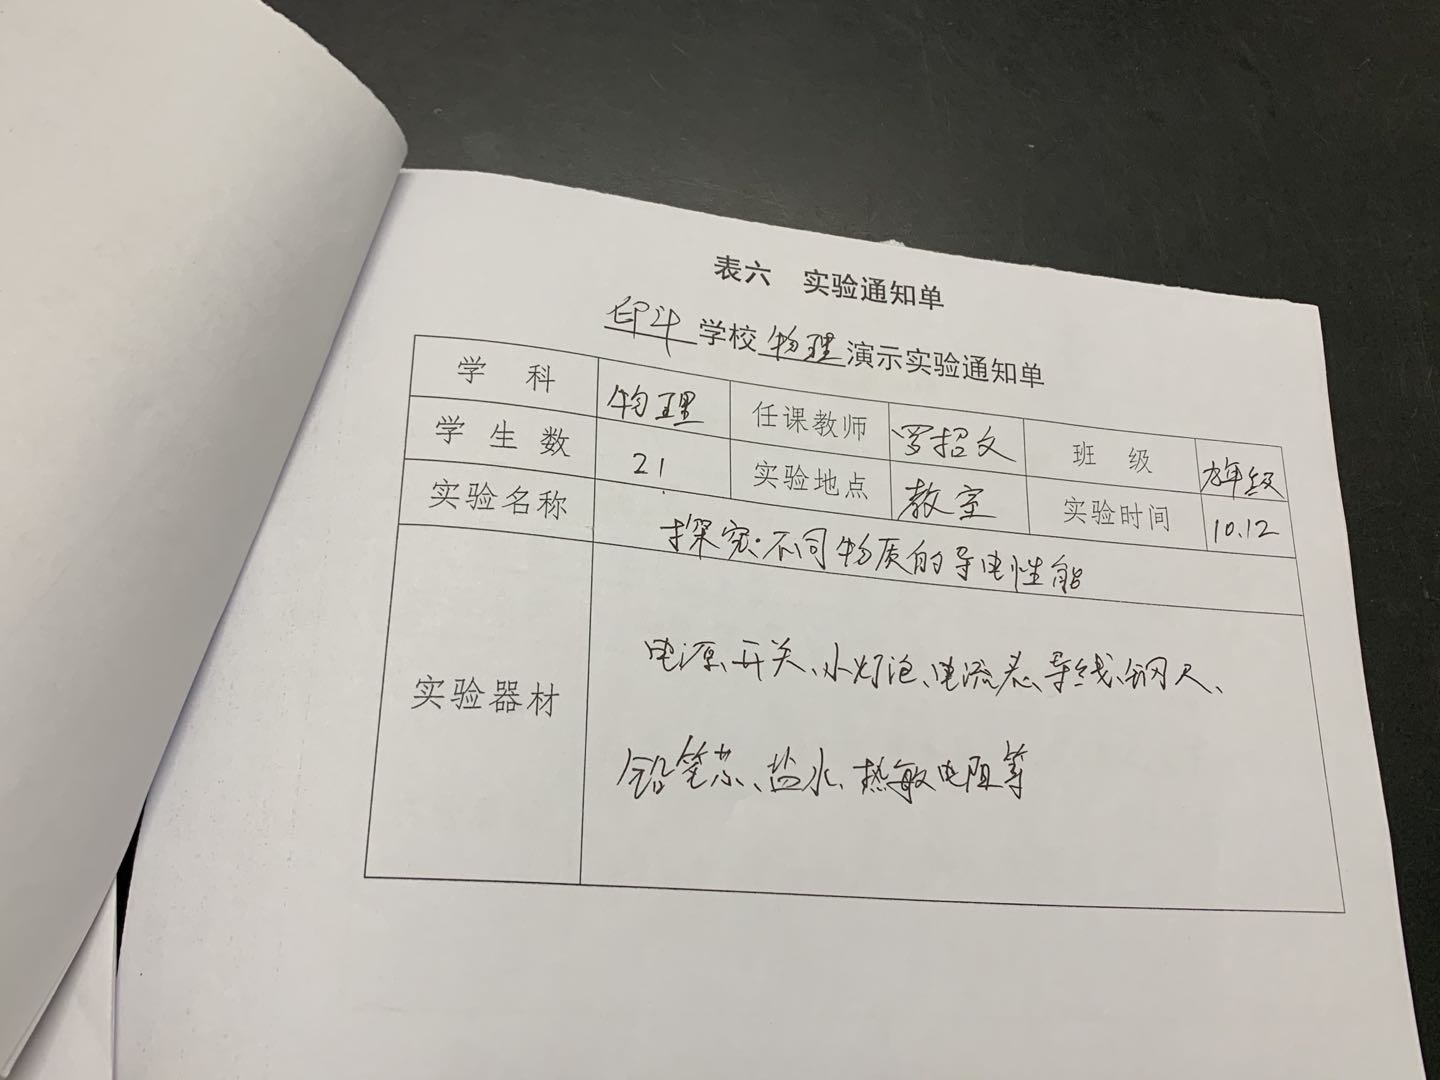 表六 实验通知单
印斗学校物理演示实验通知单
学科 物理 任课教师 罗招文 班级 九年级
学生数 21 实验地点 教室 实验时间 10.12
实验名称 探究不同物质的导电性能
实验器材 电源、开关、小灯泡、电流表、导线、钢尺、
铅笔芯、盐水、热敏电阻等